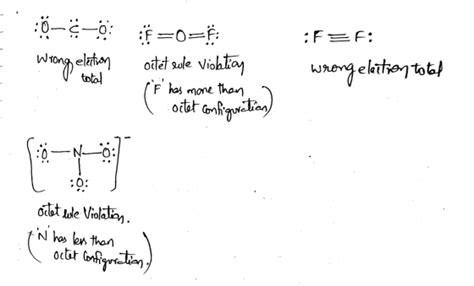 :Ö — C̈ — Ö:
wrong electron total
:F̈ = O = F̈:
octet rule violation
('F' has more than
octet configuration)
:F ≡ F:
wrong electron total
[:Ö — N — Ö:]⁻
:Ö:
octet rule violation.
('N' has less than
octet configuration.)